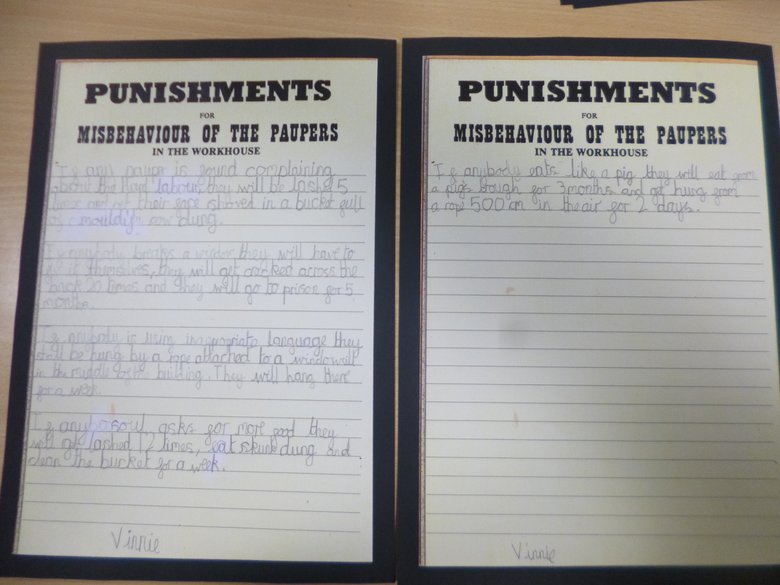 PUNISHMENTS
FOR
MISBEHAVIOUR OF THE PAUPERS
IN THE WORKHOUSE
If any pauper is found complaining
about the Hard labour, they will be lashed 5
times and get their face shoved in a bucket full
of mouldy cow dung.
If anybody breaks a window they will have to
fix it themselves, they will get cracked across the
back 20 times and they will go to prison for 5
months.
If anybody is using inappropriate language they
shall be hung by a rope attached to a windowsill
in the middle of the building. They will hang there
for a week.
If any soul asks for more food they
will get lashed 12 times, eat skunk dung and
clean the bucket for a week.
Vinnie
PUNISHMENTS
FOR
MISBEHAVIOUR OF THE PAUPERS
IN THE WORKHOUSE
If anybody eats like a pig they will eat from
a pigs trough for 3 months and get hung from
a rope 500 cm in the air for 2 days.
Vinnie